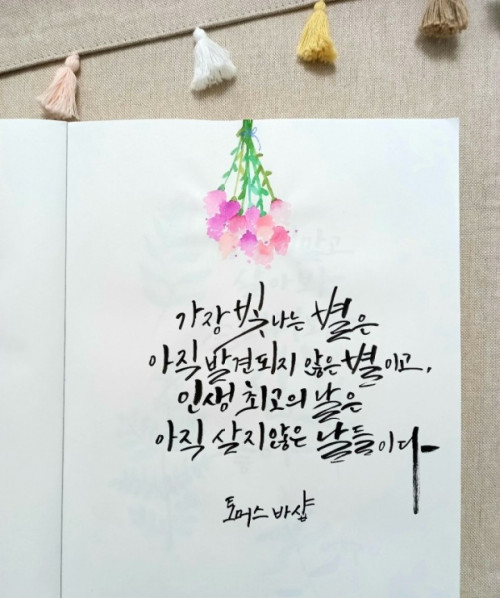 가장 빛나는 별은
아직 발견되지 않은 별이고,
인생 최고의 날은
아직 살지않은 날들이다
토머스 바샵